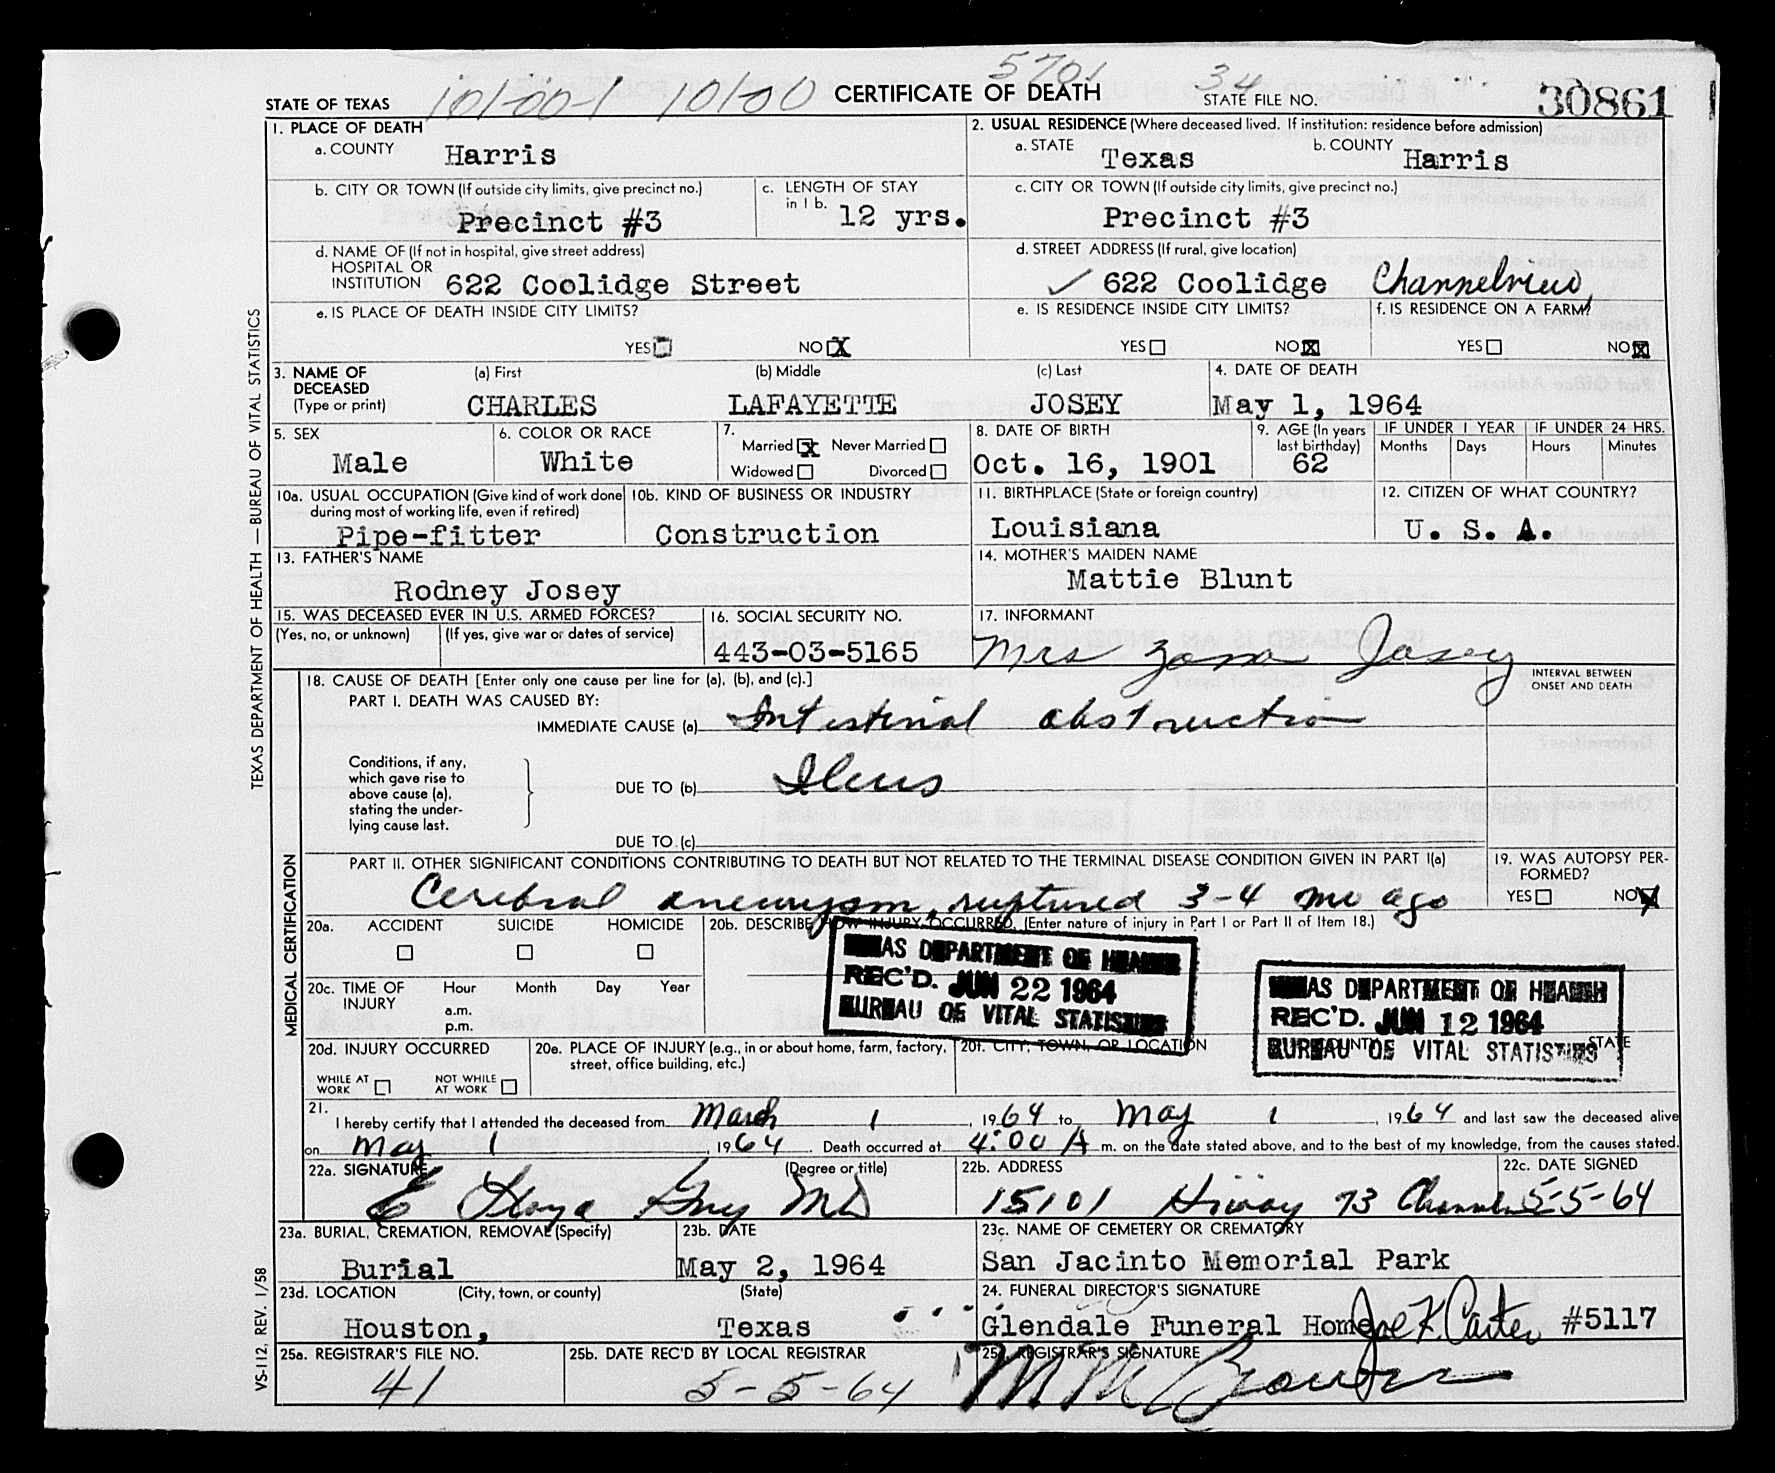 5701 34
STATE OF TEXAS 101-00-1 10100 CERTIFICATE OF DEATH STATE FILE NO. 30861
1. PLACE OF DEATH
a. COUNTY Harris
2. USUAL RESIDENCE (Where deceased lived. If institution: residence before admission)
a. STATE Texas b. COUNTY Harris
b. CITY OR TOWN (If outside city limits, give precinct no.) Precinct #3
c. LENGTH OF STAY in 1 b. 12 yrs.
c. CITY OR TOWN (If outside city limits, give precinct no.) Precinct #3
d. NAME OF (If not in hospital, give street address) HOSPITAL OR INSTITUTION 622 Coolidge Street
d. STREET ADDRESS (If rural, give location) ✓ 622 Coolidge Channelview,
e. IS PLACE OF DEATH INSIDE CITY LIMITS? YES NO X
e. IS RESIDENCE INSIDE CITY LIMITS? YES NO X
f. IS RESIDENCE ON A FARM? YES NO X
3. NAME OF DECEASED (Type or print)
(a) First CHARLES (b) Middle LAFAYETTE (c) Last JOSEY
4. DATE OF DEATH May 1, 1964
5. SEX Male
6. COLOR OR RACE White
7. Married X Never Married Widowed Divorced
8. DATE OF BIRTH Oct. 16, 1901
9. AGE (In years last birthday) 62
IF UNDER 1 YEAR Months Days
IF UNDER 24 HRS. Hours Minutes
10a. USUAL OCCUPATION (Give kind of work done during most of working life, even if retired) Pipe-fitter
10b. KIND OF BUSINESS OR INDUSTRY Construction
11. BIRTHPLACE (State or foreign country) Louisiana
12. CITIZEN OF WHAT COUNTRY? U. S. A.
13. FATHER'S NAME Rodney Josey
14. MOTHER'S MAIDEN NAME Mattie Blunt
15. WAS DECEASED EVER IN U.S. ARMED FORCES?
(Yes, no, or unknown) (If yes, give war or dates of service)
16. SOCIAL SECURITY NO. 443-03-5165
17. INFORMANT Mrs Zona Josey
18. CAUSE OF DEATH [Enter only one cause per line for (a), (b), and (c).]
INTERVAL BETWEEN ONSET AND DEATH
PART I. DEATH WAS CAUSED BY:
IMMEDIATE CAUSE (a) Intestinal obstruction
Conditions, if any, which gave rise to above cause (a), stating the underlying cause last.
DUE TO (b) Ileus
DUE TO (c)
PART II. OTHER SIGNIFICANT CONDITIONS CONTRIBUTING TO DEATH BUT NOT RELATED TO THE TERMINAL DISEASE CONDITION GIVEN IN PART I(a)
Cerebral aneurysm, ruptured 3-4 mo ago
19. WAS AUTOPSY PERFORMED? YES NO X
20a. ACCIDENT SUICIDE HOMICIDE
20b. DESCRIBE HOW INJURY OCCURRED. (Enter nature of injury in Part I or Part II of Item 18.)
TEXAS DEPARTMENT OF HEALTH
REC'D. JUN 22 1964
BUREAU OF VITAL STATISTICS
TEXAS DEPARTMENT OF HEALTH
REC'D. JUN 12 1964
BUREAU OF VITAL STATISTICS
20c. TIME OF INJURY Hour Month Day Year
a.m.
p.m.
20d. INJURY OCCURRED
WHILE AT WORK NOT WHILE AT WORK
20e. PLACE OF INJURY (e.g., in or about home, farm, factory, street, office building, etc.)
20f. CITY, TOWN, OR LOCATION COUNTY STATE
21. I hereby certify that I attended the deceased from March 1, 1964 to May 1, 1964 and last saw the deceased alive
on May 1, 1964. Death occurred at 4:00 A m. on the date stated above, and to the best of my knowledge, from the causes stated.
22a. SIGNATURE (Degree or title) E Floyd Guy MD
22b. ADDRESS 15101 Hiway 73 Channel
22c. DATE SIGNED 5-5-64
23a. BURIAL, CREMATION, REMOVAL (Specify) Burial
23b. DATE May 2, 1964
23c. NAME OF CEMETERY OR CREMATORY San Jacinto Memorial Park
23d. LOCATION (City, town, or county) (State) Houston, Texas
24. FUNERAL DIRECTOR'S SIGNATURE Glendale Funeral Home Joe K Carter #5117
25a. REGISTRAR'S FILE NO. 41
25b. DATE REC'D BY LOCAL REGISTRAR 5-5-64
25c. REGISTRAR'S SIGNATURE
TEXAS DEPARTMENT OF HEALTH — BUREAU OF VITAL STATISTICS
MEDICAL CERTIFICATION
VS-112, REV. 1/58